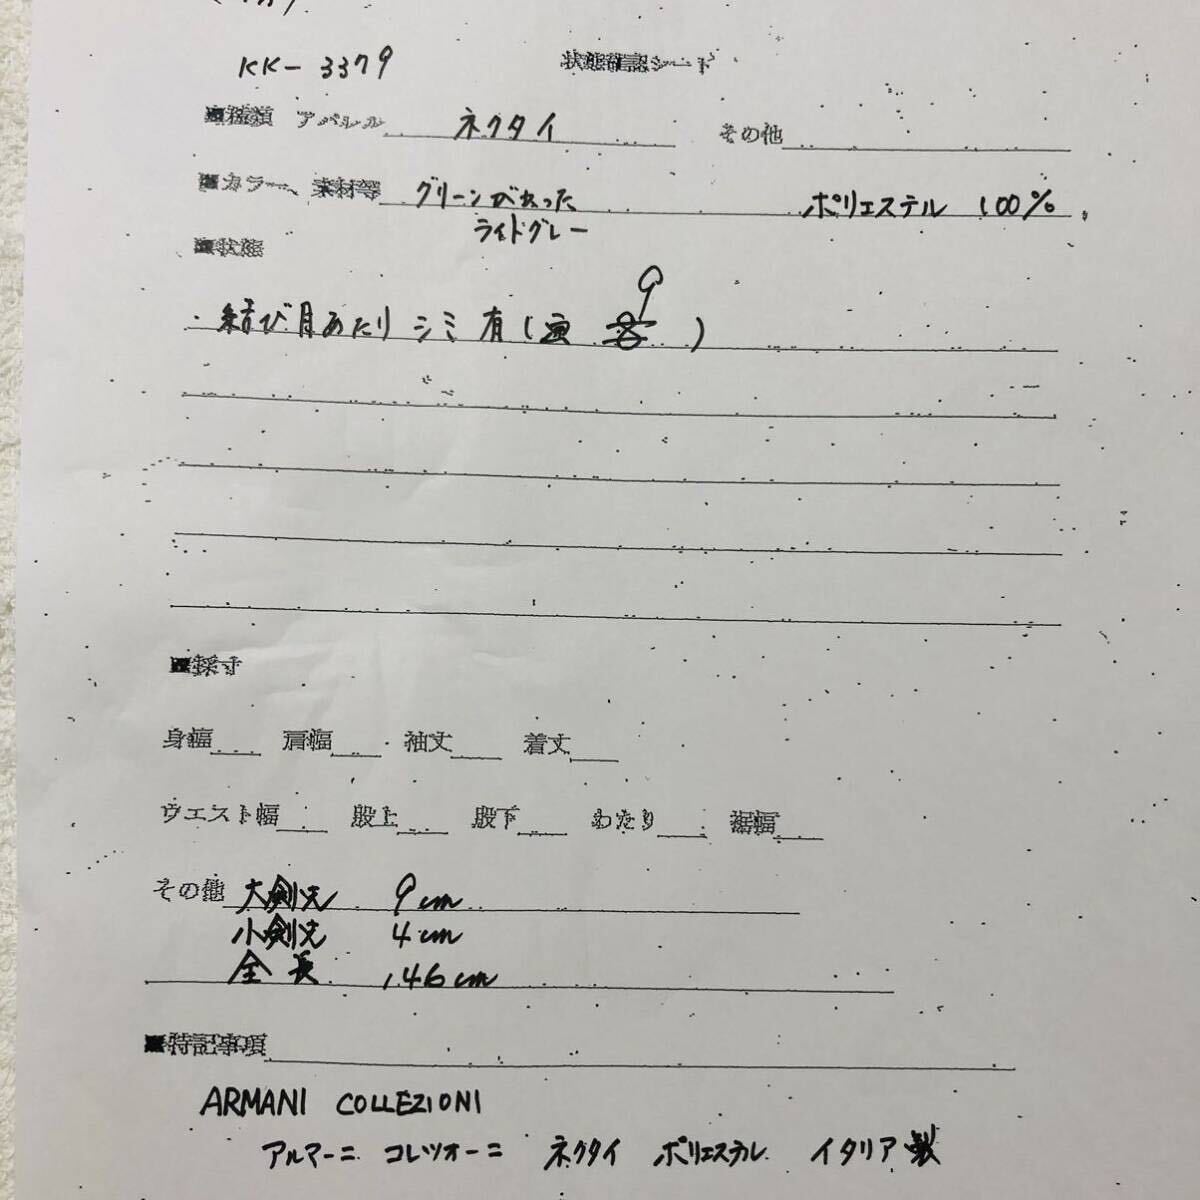 KK-3379 状態確認シート
■種類 アパレル ネクタイ その他
■カラー、素材等 グリーンがかった ポリエステル 100%
ライトグレー
■状態
・結び目あたりシミ有(画 9)
■採寸
身幅 肩幅 袖丈 着丈
ウエスト幅 股上 股下 わたり 裾幅
その他 大剣先 9cm
小剣先 4cm
全長 146cm
■特記事項
ARMANI COLLEZIONI
アルマーニ コレツォーニ ネクタイ ポリエステル イタリア製